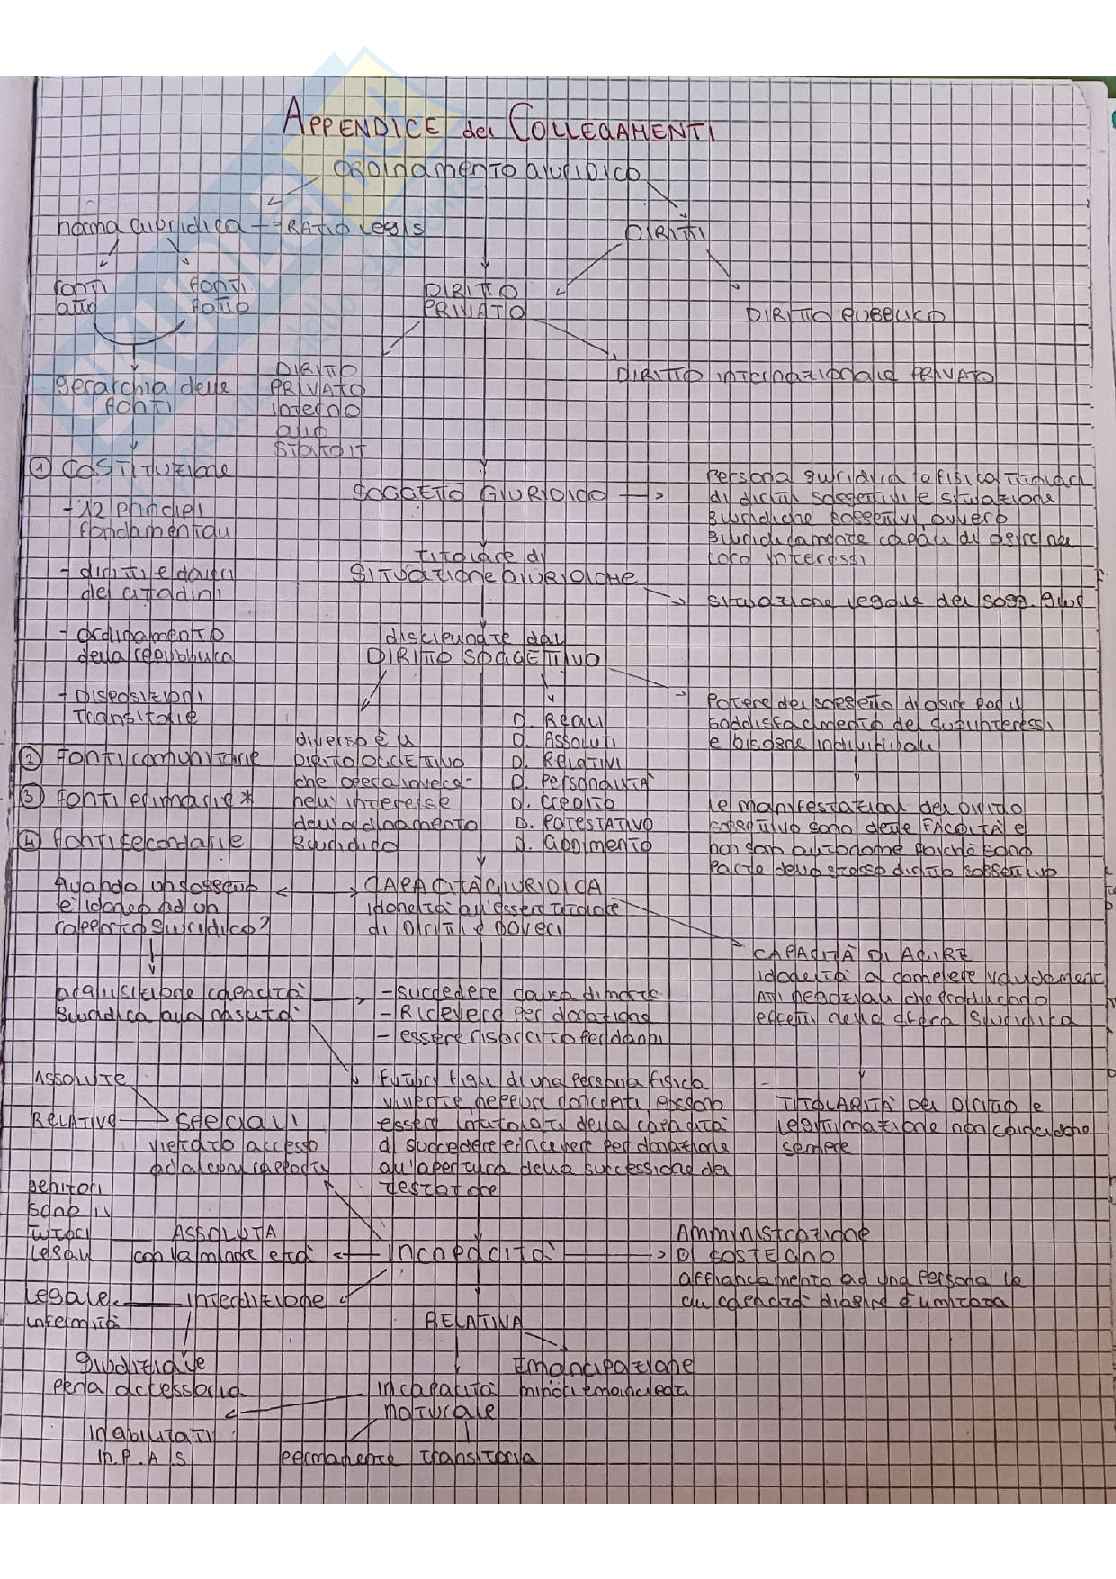 APPENDICE dei COLLEGAMENTI
ORDINAMENTO GIURIDICO
norma giuridica – RATIO Legis
DIRITTI
fonti atto
fonti fatto
DIRITTO PRIVATO
DIRITTO PUBBLICO
gerarchia delle fonti
DIRITTO PRIVATO interno
DIRITTO internazionale PRIVATO
① COSTITUZIONE
- 12 principi
fondamentali
- diritti e doveri
dei cittadini
- ordinamento
della repubblica
- DISPOSIZIONI
TRANSITORIE
② Fonti comunitarie
③ fonti primarie *
④ fonti secondarie
SOGGETTO GIURIDICO
Persona giuridica o fisica titolare
di diritti soggettivi e situazione
giuridiche
giuridicamente capaci di
loro interessi
TITOLARE di
SITUAZIONE GIURIDICHE
situazione legale del sogg. giur
disciplinate dal
DIRITTO SOGGETTIVO
D. REALI
D. ASSOLUTI
D. RELATIVI
D. PERSONALITÀ
D. CREDITO
D. POTESTATIVO
diverso è il
DIRITTO OGGETTIVO
che opera invece
nell'interesse
dell'ordinamento
giuridico
Potere del soggetto di agire per il
soddisfacimento dei suoi interessi
e bisogni individuali
le manifestazioni del diritto
soggettivo sono dette FACOLTÀ e
non sono autonome poiché sono
parte dello stesso diritto soggettivo
quando un soggetto
è idoneo ad un
rapporto giuridico?
CAPACITÀ GIURIDICA
idoneità all'essere titolare
di DIRITTI e DOVERI
CAPACITÀ DI AGIRE
idoneità a compiere validamente
atti negoziali che producono
effetti nella sfera giuridica
acquisizione capacità
giuridica alla nascita:
- succedere causa di morte
- Ricevere per donazione
- essere risarcito per danni
ASSOLUTE
RELATIVE
SPECIALI
vietato accesso
ad alcuni rapporti
Futuri figli di una persona fisica
vivente, neppure concepiti, possono
essere intitolati della capacità
di succedere e ricevere per donazione
all'apertura della successione del
testatore
TITOLARITÀ DEL DIRITTO e
legittimazione non coincidono
sempre
genitori
sono i
tutori
legali
ASSOLUTA
con la minore età
INCAPACITÀ
Amministrazione
DI SOSTEGNO
affiancamento ad una persona la
cui capacità di agire è limitata
legale
infermità
interdizione
RELATIVA
giudiziale
pena accessoria
EMANCIPAZIONE
minori emancipati
incapacità
naturale
inabilitati
in.P.A.S
permanente
transitoria